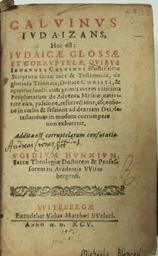 CALVINVS
IVDAIZANS,
Hoc est:
IVDAICÆ GLOSSÆ
ET CORRVPTELÆ, QVIBVS
IOHANNES CALVINVS
Scripturæ sacræ loca & Testimonia, de
gloriosa Trinitate, Deitate CHRISTI, &
Spiritus sancti, cum primis autem vaticinia
Prophetarum de Adventu Messiæ, nativi-
tate eius, passione, resurrectione, ascensio-
ne in cœlos & sessione ad dextram Dei, de-
testandum in modum corrumpere
non exhorruit.
Addita est corruptelarum confutatio
ÆGIDIVM HVNNIVM,
Sacræ Theologiæ Doctorem & Profes-
sorem in Academia VVite-
bergensi.
VVITEBERGÆ
Excudebat Vidua Matthæi VVelaci.
ANNO M. D. XCV.